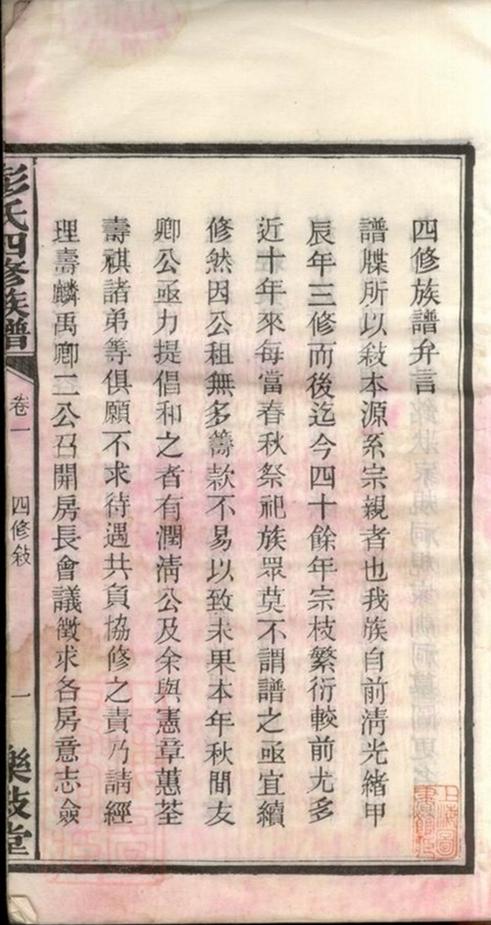 四修族譜弁言
譜牒所以敍本源系宗親者也我族自前淸光緖甲
辰年三修而後迄今四十餘年宗枝繁衍較前尤多
近十年來每當春秋祭祀族眾莫不謂譜之亟宜續
修然因公租無多籌款不易以致未果本年秋間友
卿公亟力提倡和之者有濶淸公及余與憲章蕙荃
壽祺諸弟等俱願不求待遇共負協修之責乃請經
理壽麟禹卿二公召開房長會議徵求各房意志僉
彭氏四修族譜
卷一
四修敍
一
樂敍堂
上海圖書館藏